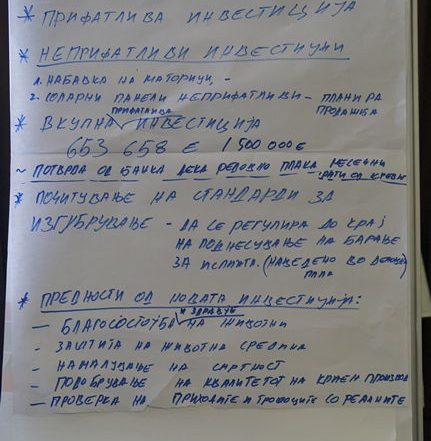 * ПРИФАТЛИВА ИНВЕСТИЦИЈА
* НЕПРИФАТЛИВИ ИНВЕСТИЦИИ
1. НАБАВКА НА МАТОРИЦИ -
2. СОЛАРНИ ПАНЕЛИ НЕПРИФАТЛИВИ - ПЛАНИРА
ПРОДАЖБА
ПРИФАТЛИВА
* ВКУПНА ИНВЕСТИЦИЈА
653 658 € 1 500 000 €
~ ПОТВРДА ОД БАНКА ДЕКА РЕДОВНО ПЛАЌА МЕСЕЧНИ
РАТИ ОД КРЕДИТ
* ПОЧИТУВАЊЕ НА СТАНДАРДИ ЗА
ИЗГУБРУВАЊЕ - ДА СЕ РЕГУЛИРА ДО КРАЈ
НА ПОДНЕСУВАЊЕ НА БАРАЊЕ
ЗА ИСПЛАТА. (НАВЕДЕНО ВО
* ПРЕДНОСТИ ОД НОВАТА ИНВЕСТИЦИЈА:
И ЗДРАВЈЕ
- БЛАГОСОСТОЈБА НА ЖИВОТНИ
- ЗАШТИТА НА ЖИВОТНА СРЕДИНА
- НАМАЛУВАЊЕ НА СМРТНОСТ
- ПОДОБРУВАЊЕ НА КВАЛИТЕТОТ НА КРАЕН ПРОИЗВОД
- ПРОВЕРКА НА ПРИХОДИТЕ И ТРОШОЦИТЕ СО РЕАЛНИТЕ